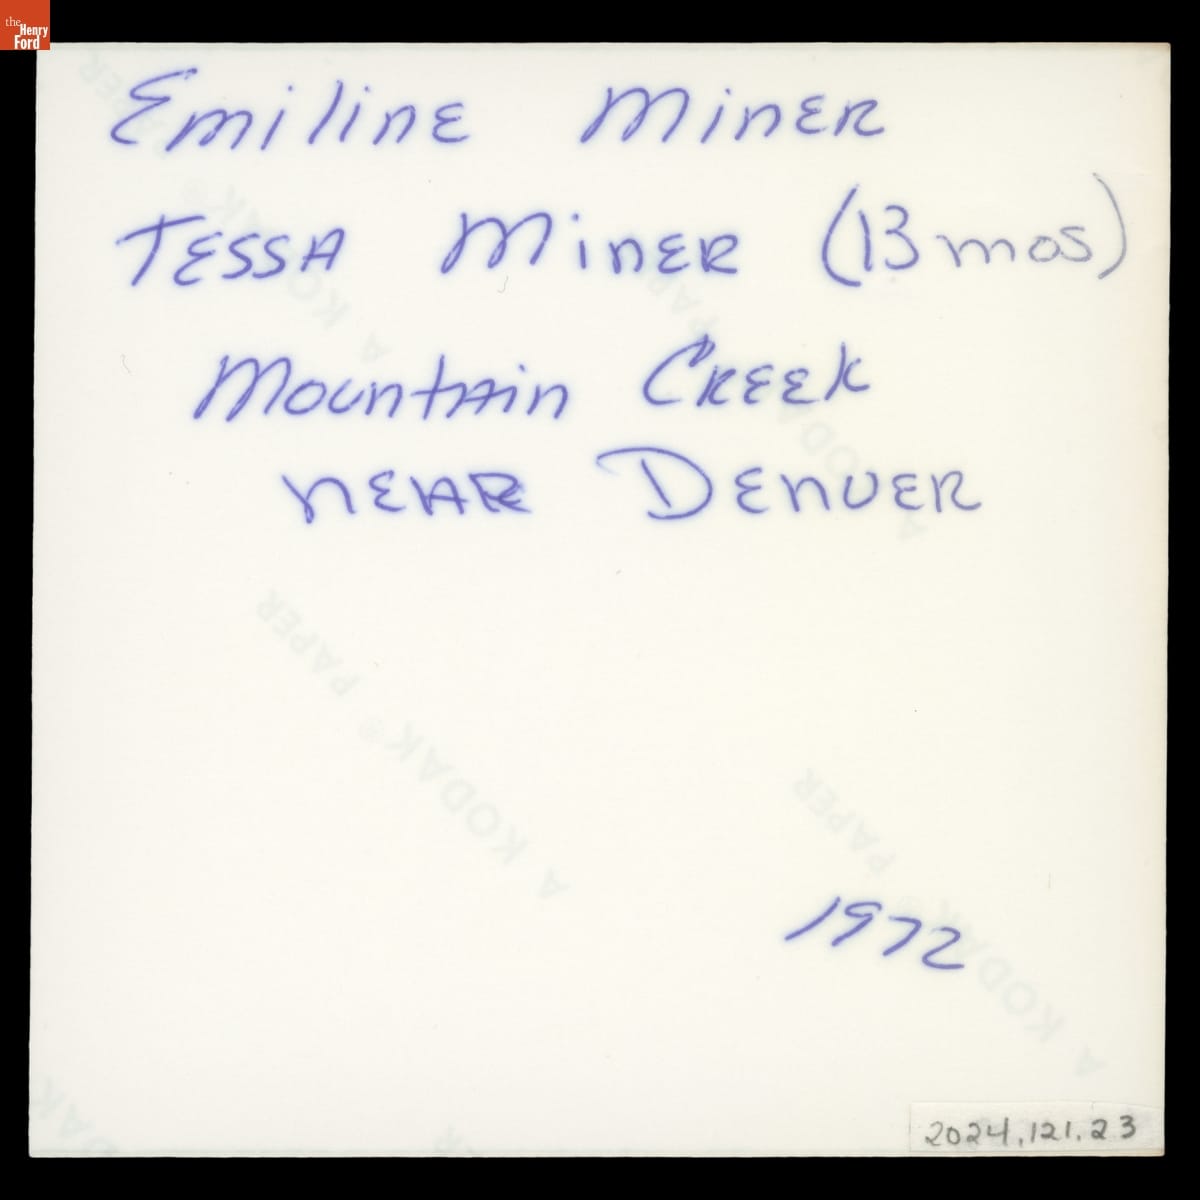 the
Henry
Ford
Emiline Miner
Tessa Miner (13 mos)
Mountain Creek
near Denver
A KODAK® PAPER
A KODAK® PAPER
1972
2024.121.23